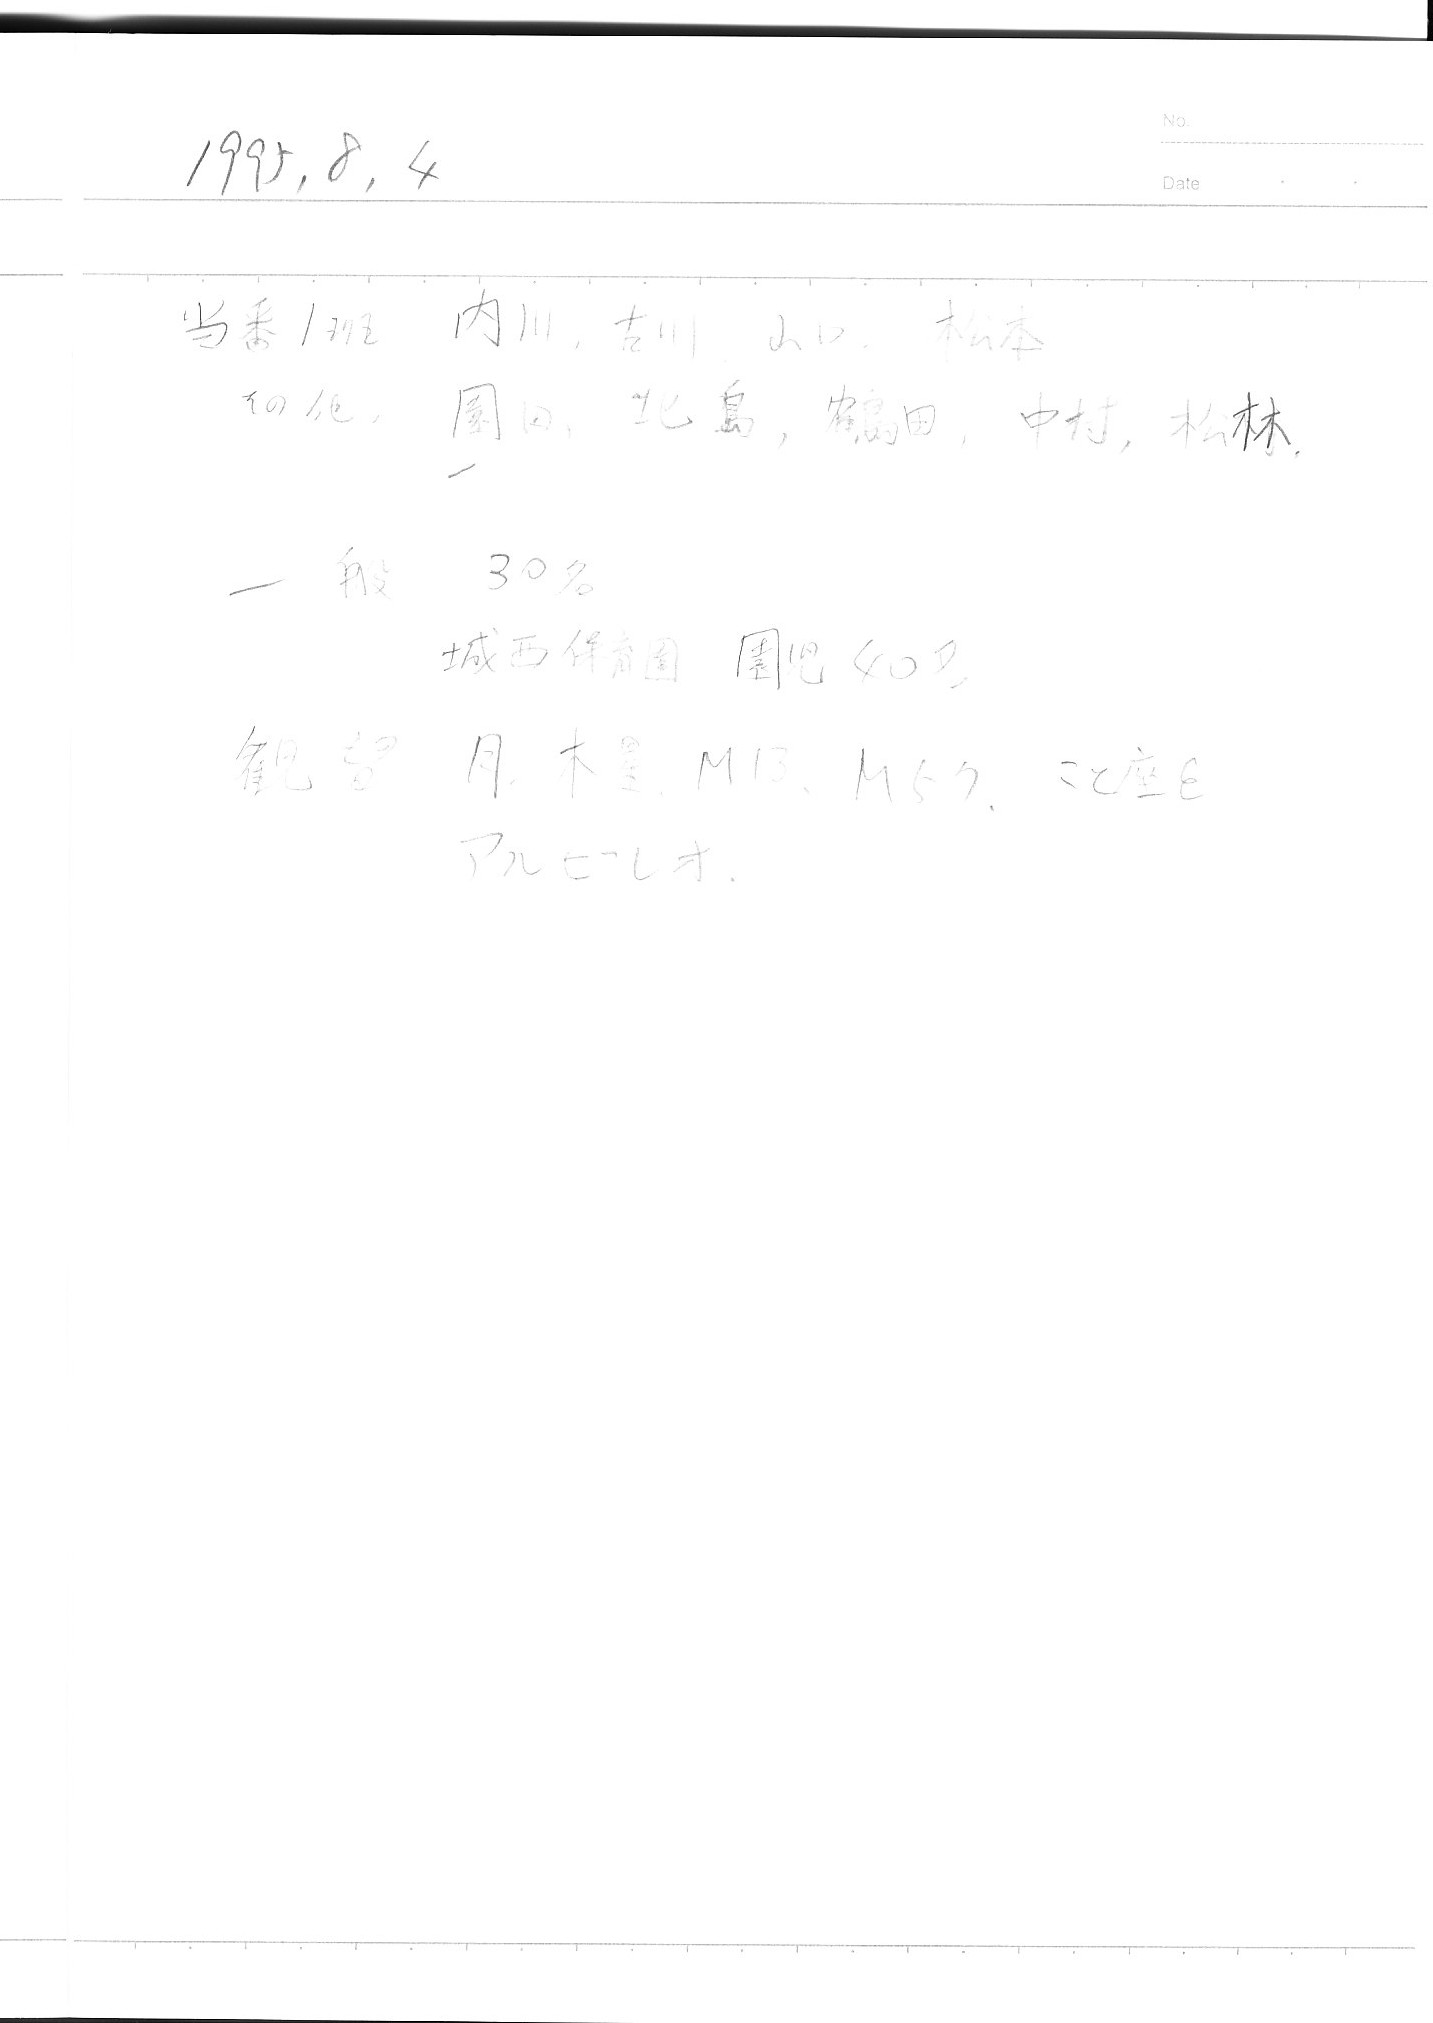 No.
1995, 8, 4
Date
当番1班 内川, 古川, 山口, 松本
その他, 園田, 北島, 鶴田, 中村, 松林.
一般 30名
城西保育園 園児40名
観望 月、木星、M13、M57、こと座ε
アルビレオ.